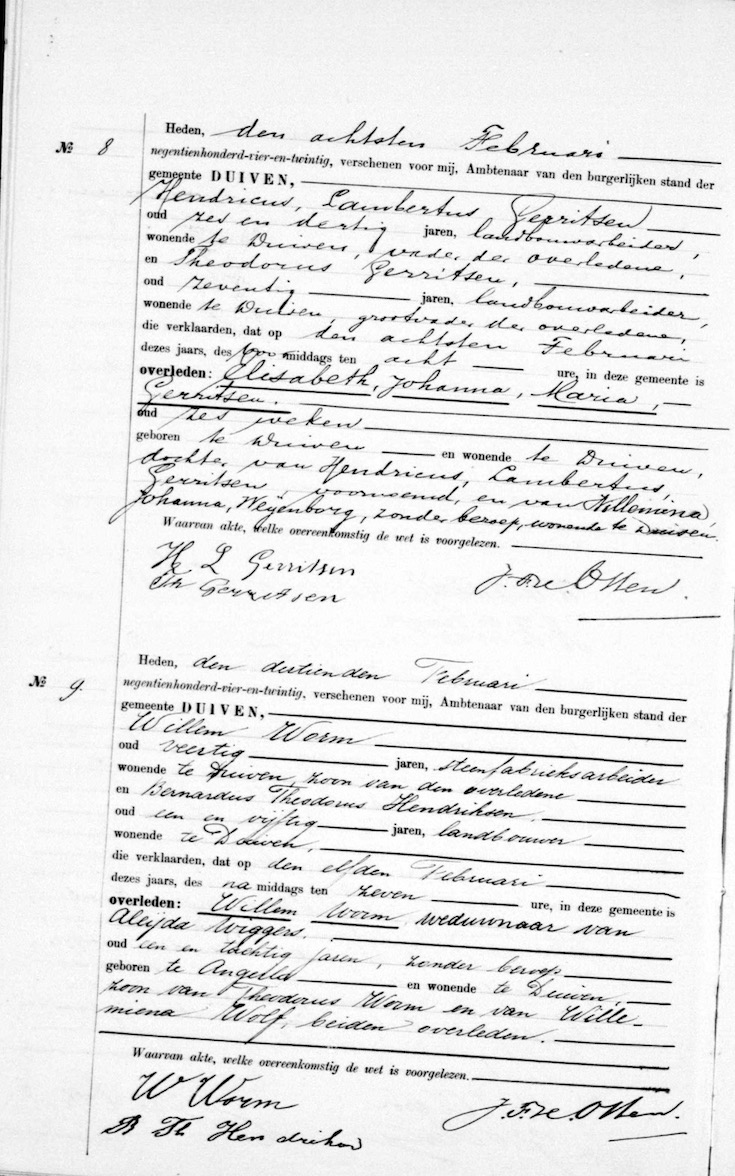 Heden, den achtsten Februari
№ 8
negentienhonderd-vier-en-twintig, verschenen voor mij, Ambtenaar van den burgerlijken stand der
gemeente DUIVEN,
Hendricus, Lambertus Gerritsen
oud zes en dertig jaren, landbouwarbeider,
wonende te Duiven, vader der overledene,
en Theodorus Gerritsen,
oud zeventig jaren, landbouwarbeider,
wonende te Duiven, grootvader der overledene,
die verklaarden, dat op den achtsten Februari
dezes jaars, des voormiddags ten acht ure, in deze gemeente is
overleden: Elisabeth, Johanna, Maria,
Gerritsen.
oud zes weken
geboren te Duiven en wonende te Duiven,
dochter van Hendricus, Lambertus,
Gerritsen voornoemd, en van Willemina,
Johanna, Weijenborg, zonder beroep, wonende te Duiven.
Waarvan akte, welke overeenkomstig de wet is voorgelezen.
H L Gerritsen
Th Gerritsen
Otten.
Heden, den dertienden Februari
№ 9.
negentienhonderd-vier-en-twintig, verschenen voor mij, Ambtenaar van den burgerlijken stand der
gemeente DUIVEN,
Willem Worm
oud veertig jaren, steenfabrieksarbeider
wonende te Duiven, zoon van den overledene
en Bernardus Theodorus Hendriksen.
oud een en vijftig jaren, landbouwer
wonende te Duiven.
die verklaarden, dat op den elfden Februari
dezes jaars, des namiddags ten zeven ure, in deze gemeente is
overleden: Willem Worm, weduwnaar van
Aleijda Wiggers.
oud een en tachtig jaren, zonder beroep
geboren te Angerlo en wonende te Duiven,
zoon van Theodorus Worm en van Wille-
miena Wolf, beiden overleden.
Waarvan akte, welke overeenkomstig de wet is voorgelezen.
W Worm
B Th Hendriksen
Otten.